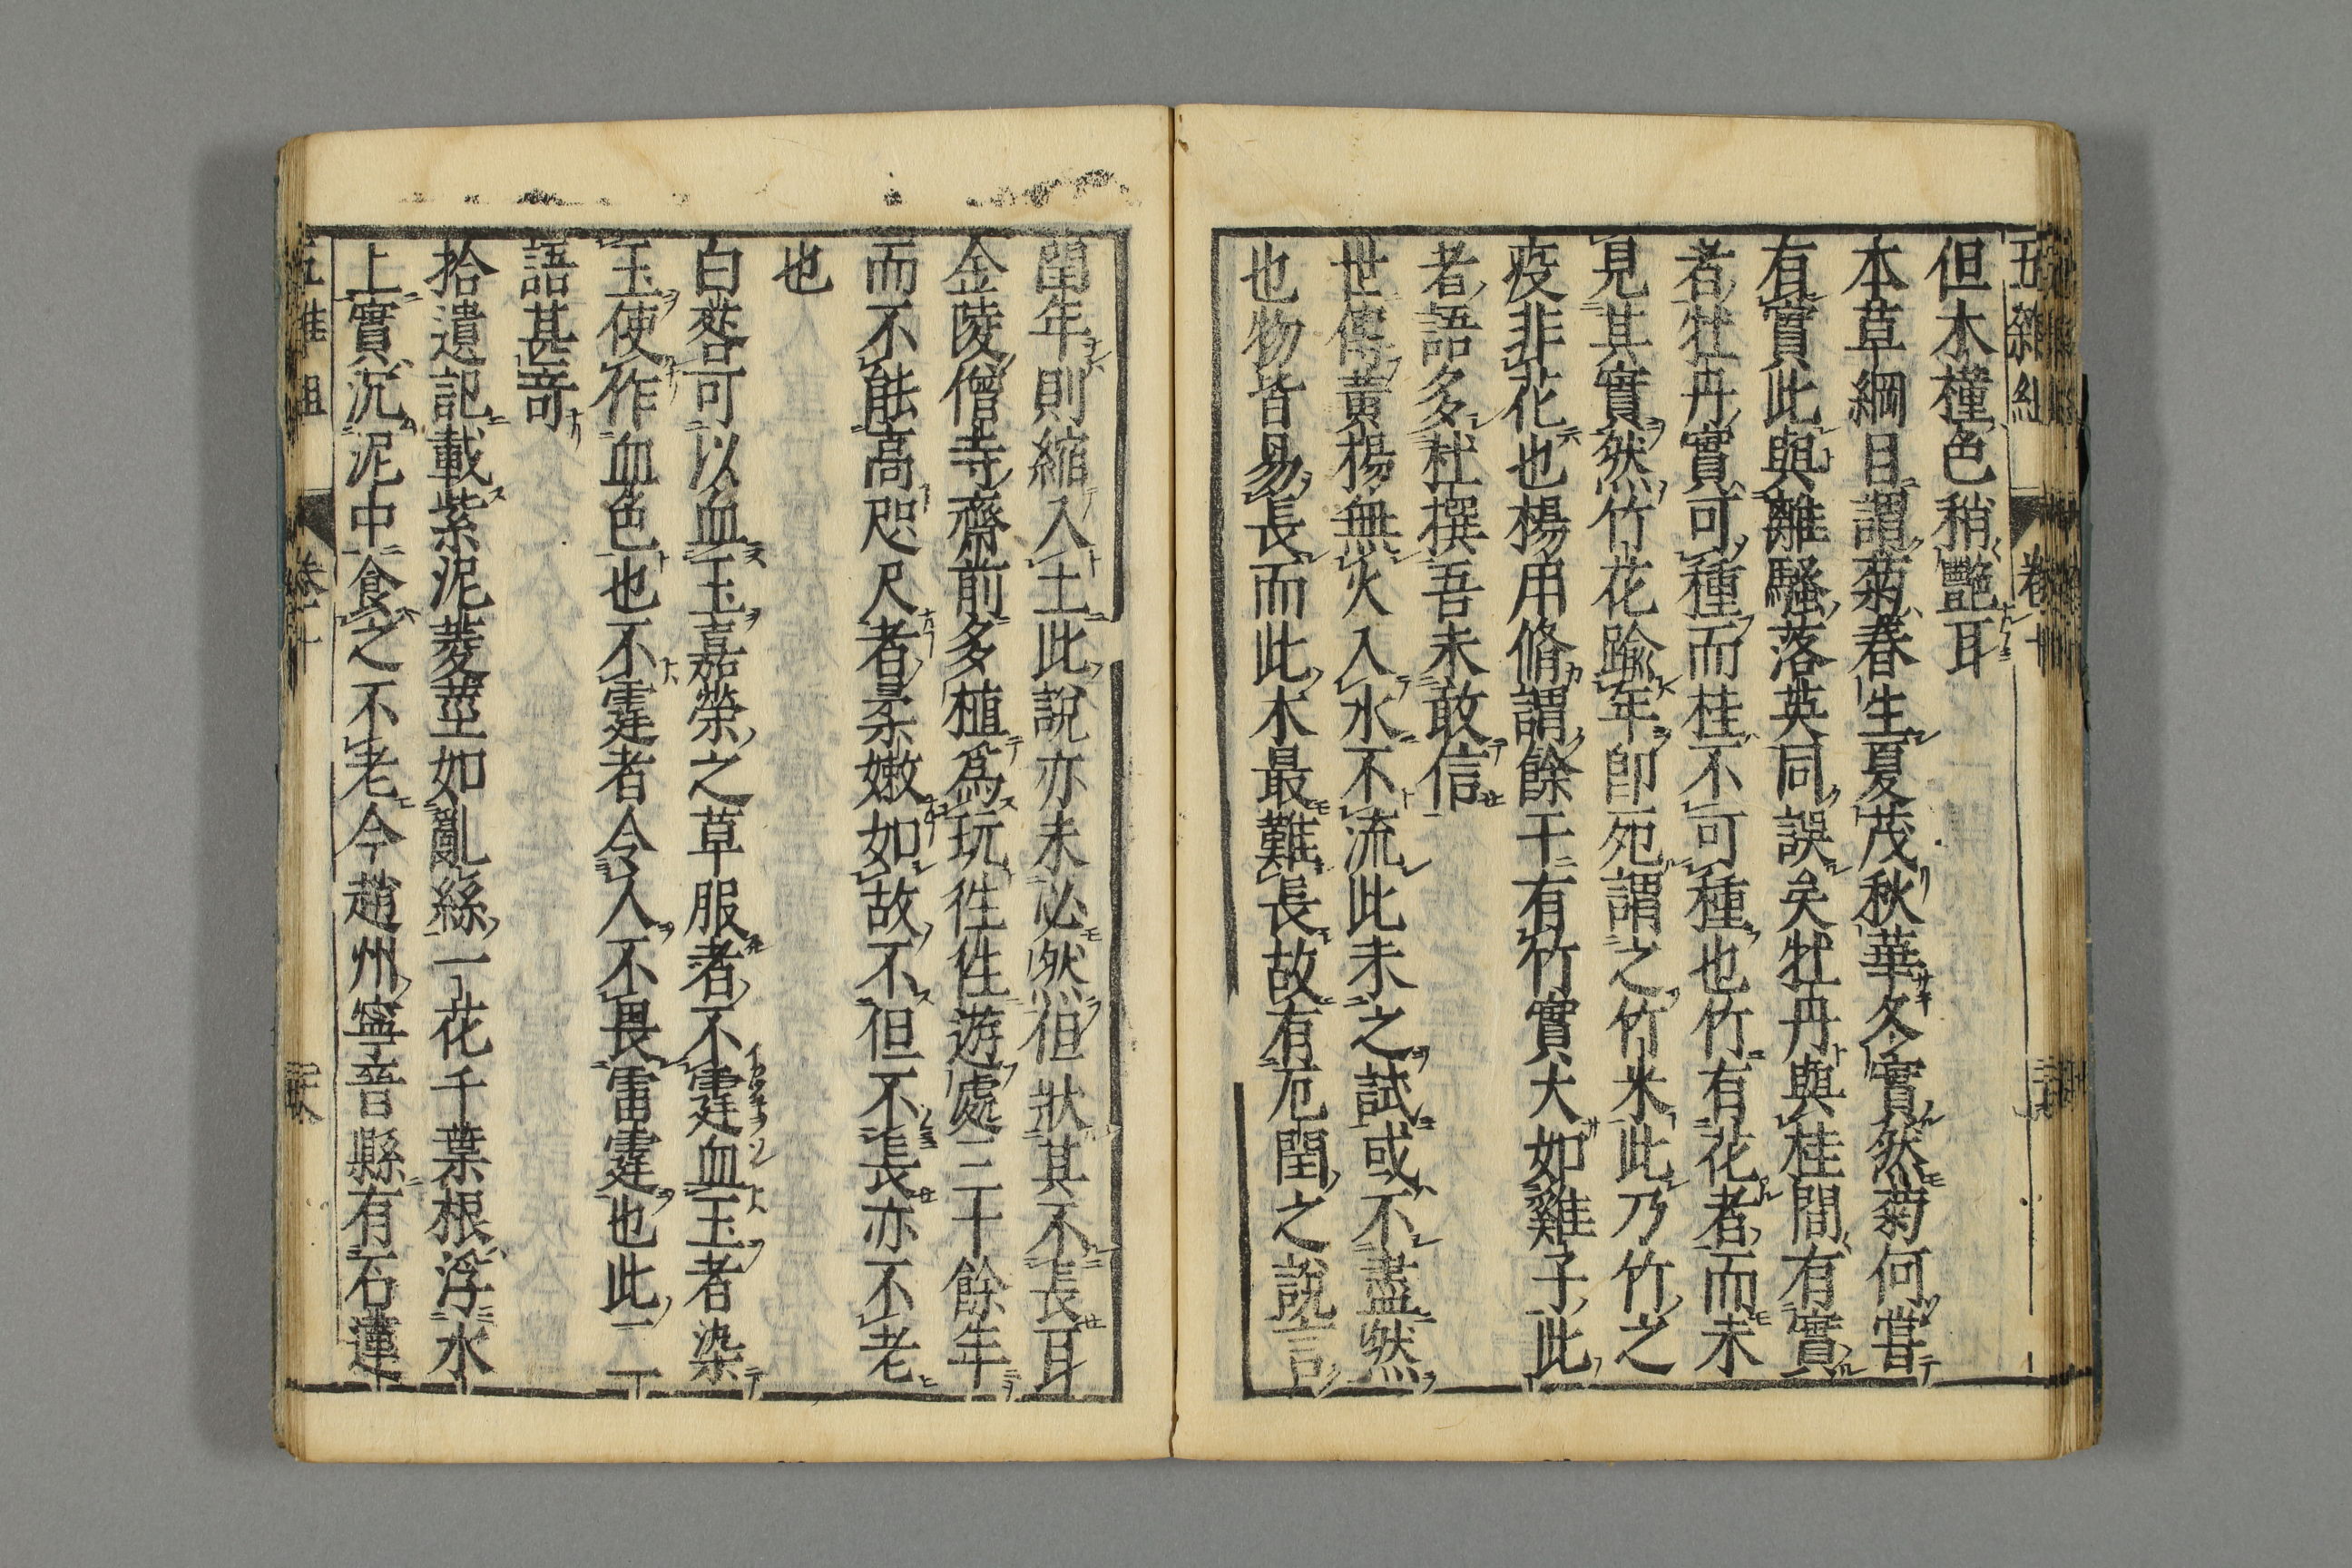 五雜俎 卷十
但木橦色稍艷耳
本草綱目謂菊春生夏茂秋華冬實然菊何嘗
有實此與離騷落英同誤矣牡丹與桂間有實
者牡丹實可種而桂不可種也竹有花者而未
見其實然竹花踰年即死謂之竹米此乃竹之
疫非花也楊用脩謂餘干有竹實大如雞子此
者語多杜撰吾未敢信
世傳黃楊無火入水不沉此未之試或不盡然
也物皆易長而此木最難長故有厄閏之說言
閏年則縮入土此說亦未必然但狀其不長耳
金陵僧寺齋前多植爲玩徃徃遊處二十餘年
而不能高咫尺者柔嫩如故不但不長亦不老
也
白
可以血玉嘉榮之草服者不霆血玉者染
玉使作血色也不霆者令人不畏雷霆也此二
語甚奇
拾遺記載紫泥菱莖如亂絲一花千葉根浮水
上實沉泥中食之不老今趙州寧晉縣有石蓮
五雜俎 卷十